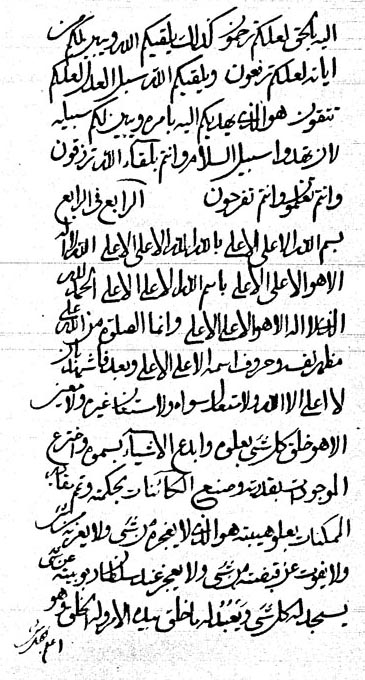 اليه بالحق لعلكم ترحمون كذلك يلقيكم الله ويبين لكم
اياته لعلكم ترفعون ويلقيكم الله سبيل العدل لعلكم
تتقون هو الذى يهديكم اليه بامره ويبين لكم سبيله
لان تهدوا سبيل السلام وانتم بلقاء الله ترزقون
وانتم وانتم تفرحون الرابع فى الرابع
بسم الله الاعلى الاعلى بالله الله الاعلى الاعلى الله لا اله
الا هو الاعلى الاعلى باسم الله الاعلى الاعلى الحمد لله
الذى لا اله الا هو الاعلى الاعلى وانما الصلوة من الله على
مظهر نفسه وحروف اسمه الاعلى الاعلى وبعد فاشهد بان
لا اعلى الا الله ولا متعال سواه ولا مستغاث غيره ولا معين
الا هو خلق كل شئ بعلوه وابدع الاشياء بسموه واخترع
الموجودات بقدرته وصنع الكائنات بحكمته
الممكنات بعلو هيبته هو الذى لا يعجزه من شئ ولا يعزب
ولا يفوت عن قبضته من شئ ولا يعجز عند سلطان ربوبيته
يسجد له كل شئ ويعبد له ما خلق بيده الامر وله الخلق وهو